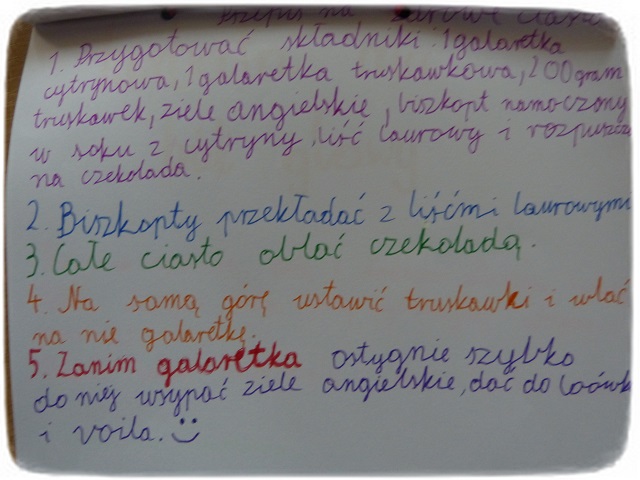 Przepis na zdrowe ciasto
1. Przygotować składniki: 1 galaretka
cytrynowa, 1 galaretka truskawkowa, 200 gram
truskawek, ziele angielskie, biszkopt namoczony
w soku z cytryny, liść laurowy i rozpuszczo
na czekolada.
2. Biszkopty przekładać z liśćmi laurowymi
3. Całe ciasto oblać czekoladą.
4. Na samą górę ustawić truskawki i wlać
na nie galaretkę.
5. Zanim galaretka ostygnie szybko
do niej wsypać ziele angielskie, dać do lodówk
i voila. :)